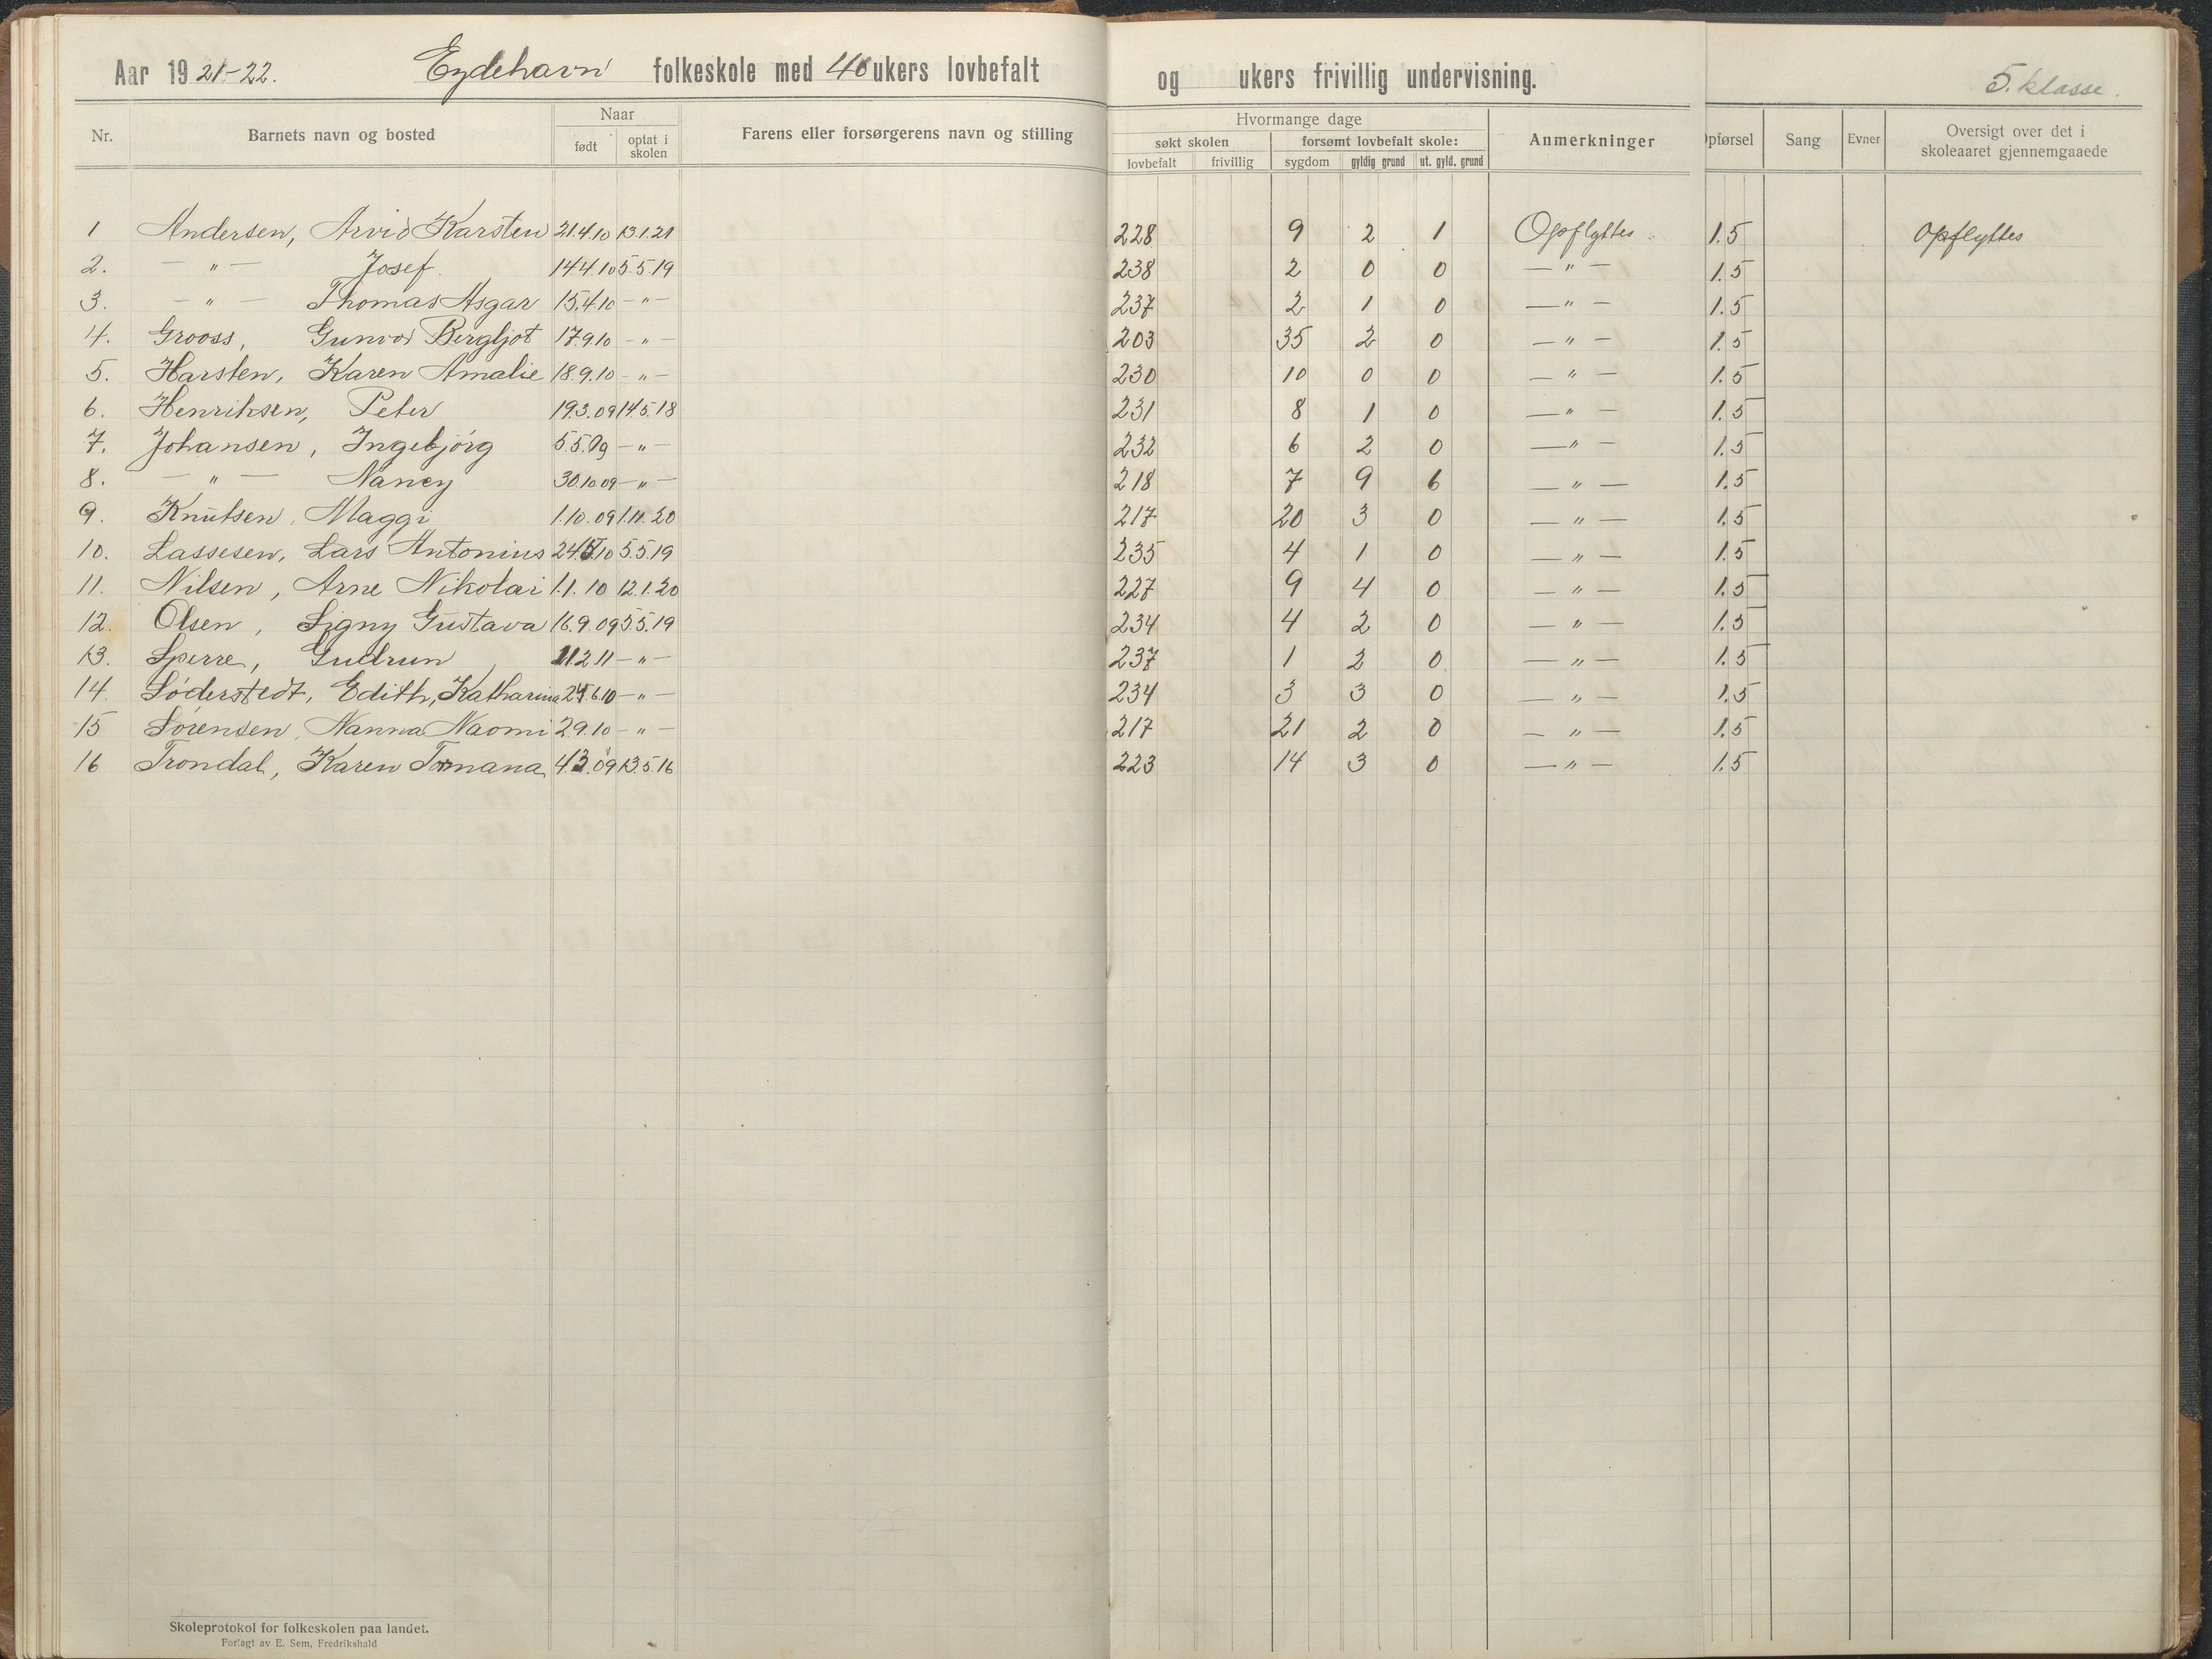 Aar 19 21-22. Eydehavn folkeskole med 40 ukers lovbefalt og ukers frivillig undervisning. 5. klasse.
Nr. Barnets navn og bosted Naar Farens eller forsørgerens navn og stilling Hvormange dage Anmerkninger Opførsel Sang Evner Oversigt over det i skoleaaret gjennemgaaede
født optat i skolen søkt skolen forsømt lovbefalt skole:
lovbefalt frivillig sygdom gyldig grund ut. gyld. grund
1 Andersen, Arvid Karsten 21.4.10 13.1.21 228 9 2 1 Opflyttes. 1.5 Opflyttes
2. — " — Josef. 14.4.10 5.5.19 238 2 0 0 — " — 1.5
3. — " — Thomas Asgar 15.4.10 — " — 237 2 1 0 — " — 1.5
4. Grooss, Gunvor Bergljot 17.9.10 — " — 203 35 2 0 — " — 1.5
5. Harsten, Karen Amalie 18.9.10 — " — 230 10 0 0 — " — 1.5
6. Henriksen, Peter 19.3.09 14.5.18 231 8 1 0 — " — 1.5
7. Johansen, Ingebjörg 5.5.09 — " — 232 6 2 0 — " — 1.5
8. — " — Nancy 30.10.09 — " — 218 7 9 6 — " — 1.5
9. Knutsen, Maggi 1.10.09 1.11.20 217 20 3 0 — " — 1.5
10. Lassesen, Lars Antonius 5.5.19 235 4 1 0 — " — 1.5
11. Nilsen, Arne Nikolai 1.1.10 12.1.20 227 9 4 0 — " — 1.5
12. Olsen, Signy Gustava 16.9.09 5.5.19 234 4 2 0 — " — 1.5
13. Sperre, Gudrun 11.2.11 — " — 237 1 2 0 — " — 1.5
14. Söderstedt, Edith, Katharina — " — 234 3 3 0 — " — 1.5
15 Sörensen, Nanna Naomi 2.9.10 — " — 217 21 2 0 — " — 1.5
16 Trondal, Karen 13.5.16 223 14 3 0 — " — 1.5
Skoleprotokol for folkeskolen paa landet.
Forlagt av E. Sem, Fredrikshald